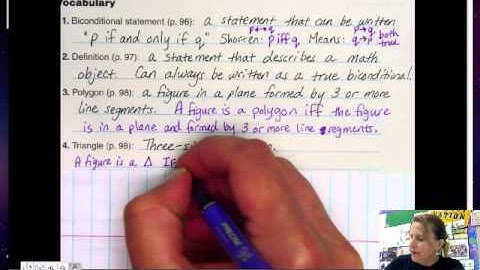 Vocabulary
p↔q p→q
1. Biconditional statement (p. 96): a statement that can be written
"p if and only if q." Shorten: p iff q Means: q→p both true
2. Definition (p. 97): a statement that describes a math
object. Can always be written as a true biconditional.
3. Polygon (p. 98): a figure in a plane formed by 3 or more
line segments. A figure is a polygon iff the figure
is in a plane and formed by 3 or more line segments.
4. Triangle (p. 98): Three-
A figure is a Δ If